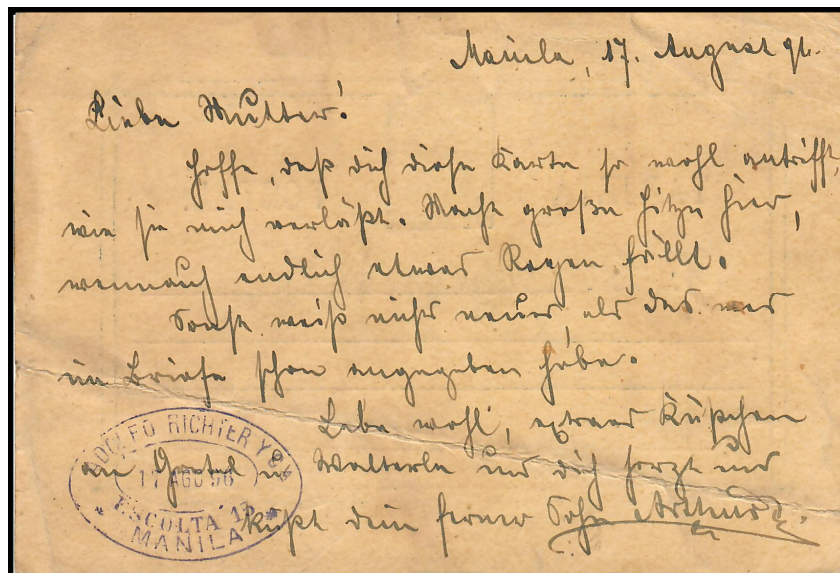 Manila, 17. August 96.
Liebe Mutter!
Hoffe, daß dich diese Karte so wohl antrifft,
wie sie mich verläßt. Macht große Hitze hier,
wennauch endlich etwas Regen fällt.
Sonst weiß nichts neues, als das was
im Briefe schon angegeben habe.
Lebe wohl, extraes Küßchen
an Gretel u Walterle und dich herzt und
küßt dein ferner Sohn Arthur.
ADOLFO RICHTER Y Cª
17 AGO 96
ESCOLTA 13
MANILA